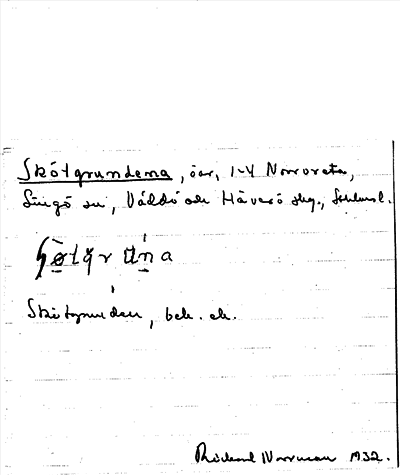 Skötgrundena, öar, 1-4 Norrvreta,
Singö sn, Väddö och Häverö skg., Sthlms l.
Skötgrunden, bek. ek.
Rickard Norrman 1932.